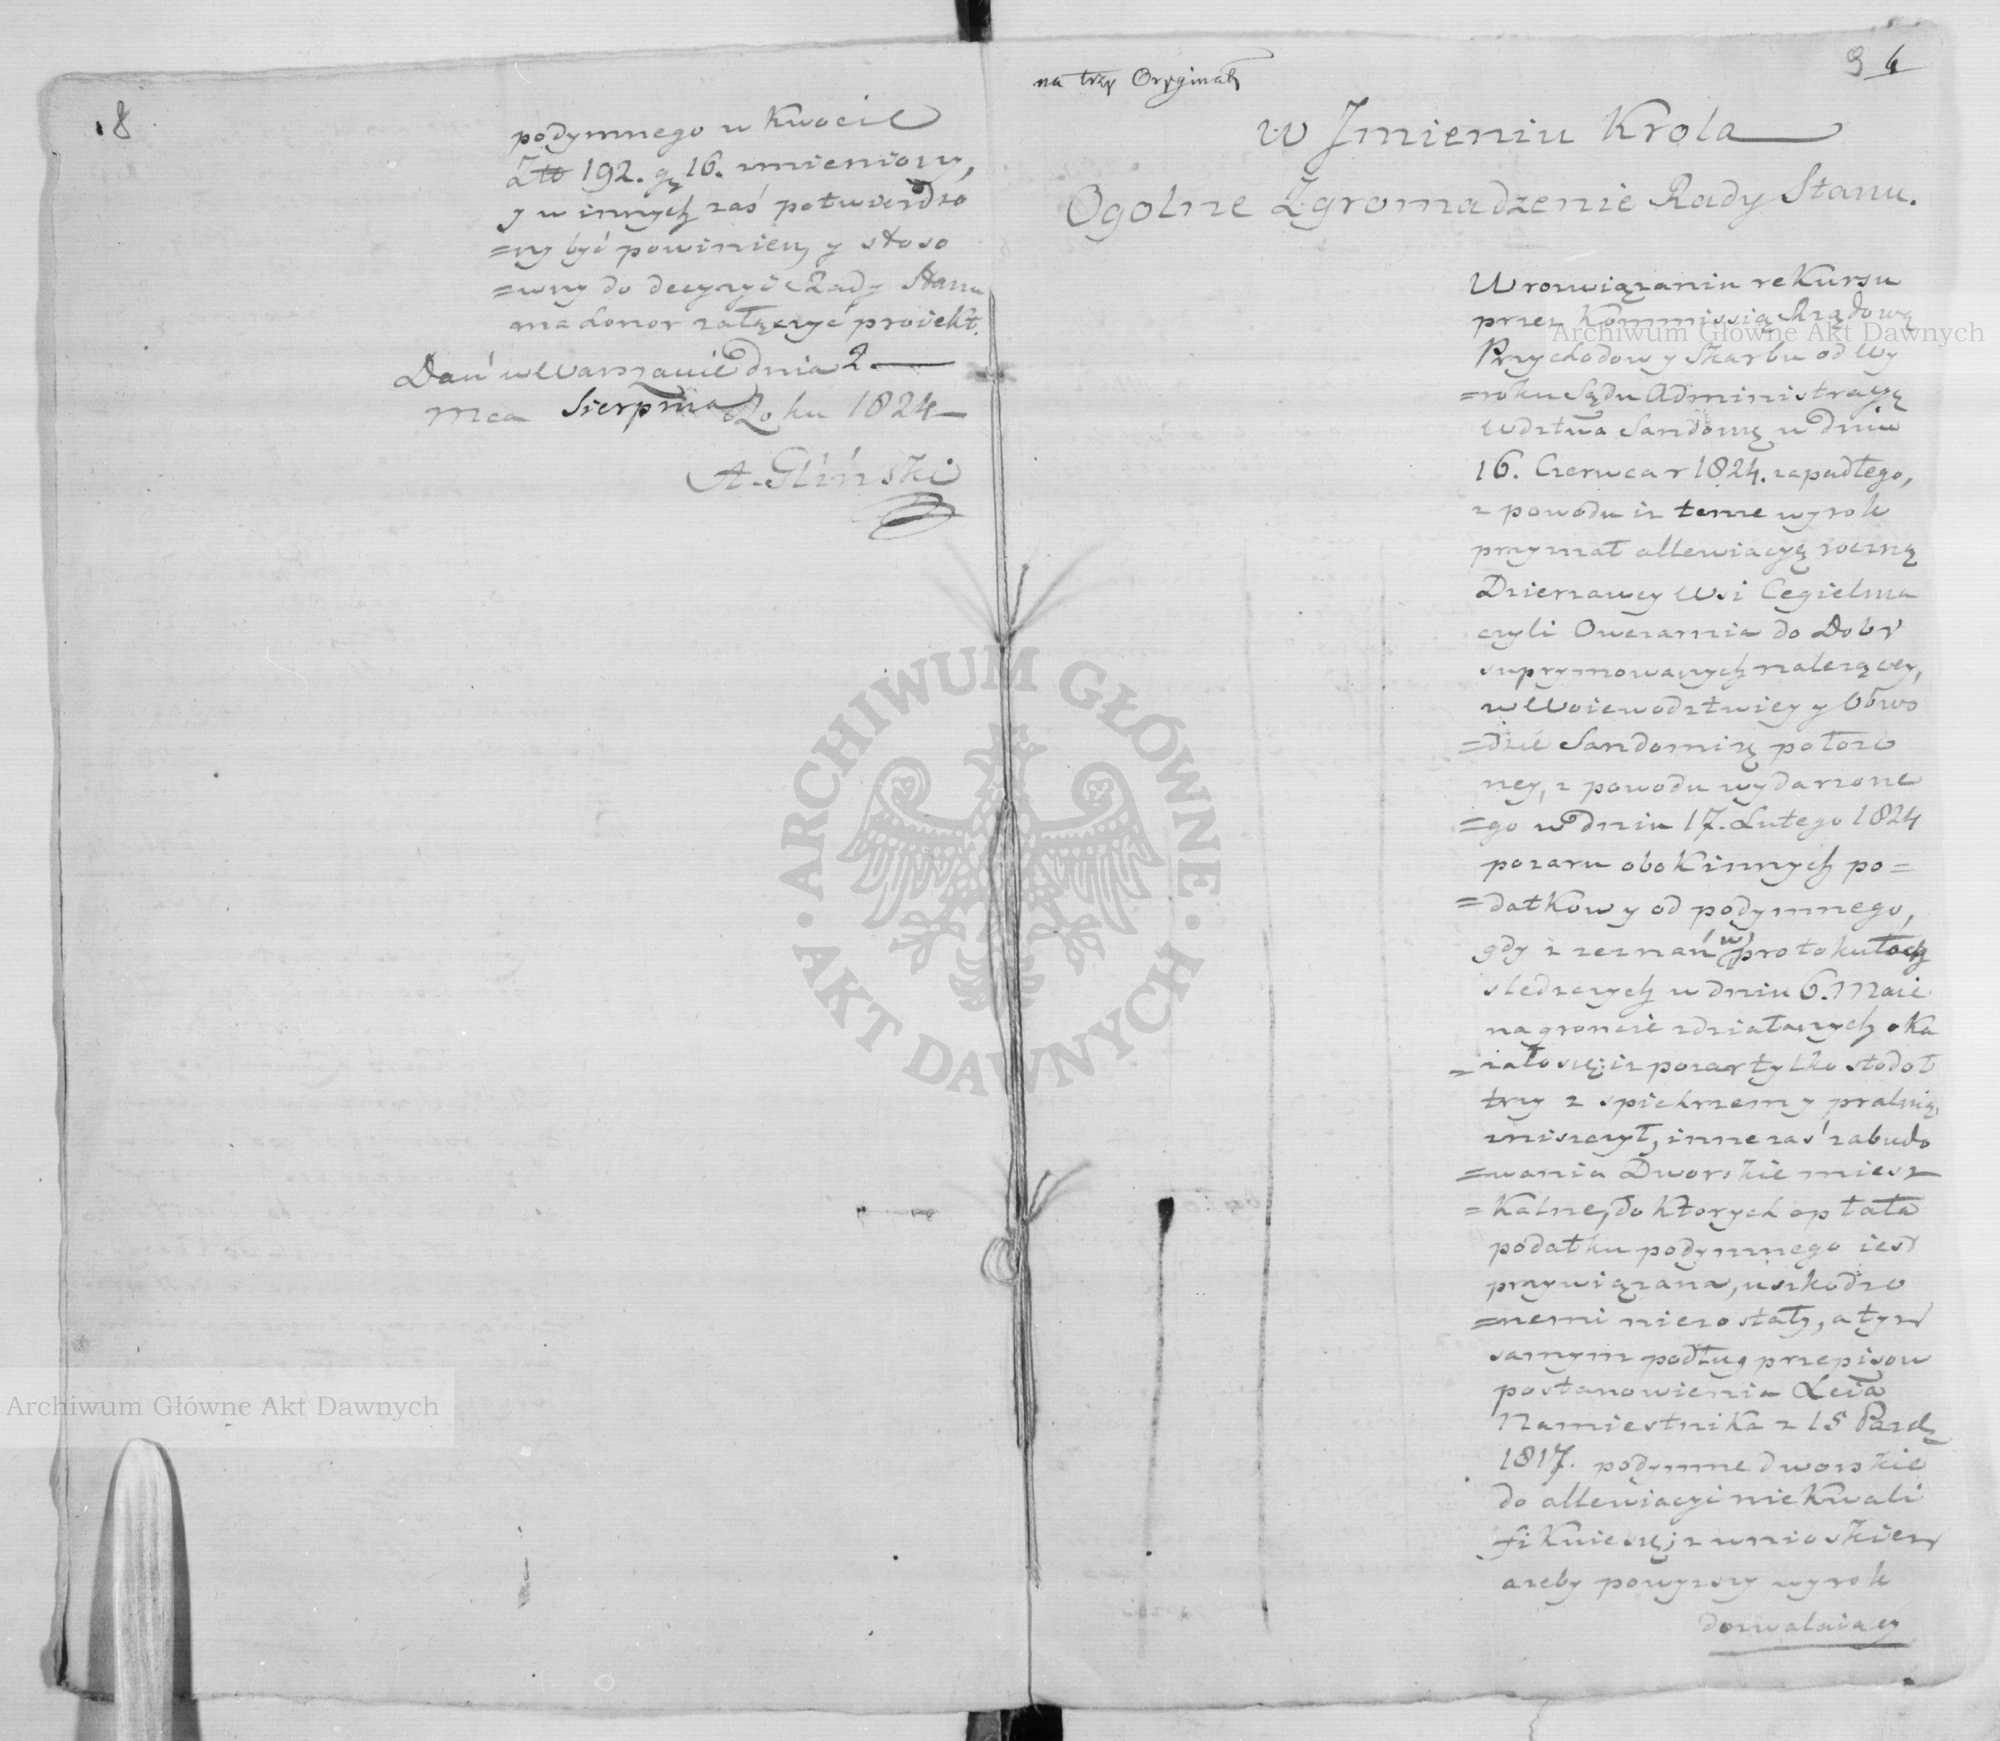 8
podymnego w kwocie
Złt 192. gr 16. zmieniony,
y w innych zaś potwierdzo
=ny być powinien, y stoso
=wny do decyzyi Rady Stanu
ma honor załączyć proiekt.
Dań w Warszawie dnia 2.
Mca Sierpnia Roku 1824
A. Gliński
9 4
na trzy Oryginały
W Jmieniu Krola
Ogolne Zgromadzenie Rady Stanu.
W rozwiązaniu rekursu
przez Kommissią Rządową
Przychodow y Skarbu od Wy
=roku Sądu Administracyi
Wdztwa Sandomę w dniu
16. Czerwca r 1824. zapadłego,
z powodu iz tenze wyrok
przyznał allewiacyą roczną
Dzierzawcy Wsi Cegielnia
czyli Owczarnia do Dobr
suprymowanych nalezącey,
w Woiewodztwie y Obwo
=dzie Sandomirę połozo
ney, z powodu wydarzone
=go w dniu 17. Lutego 1824
pozaru obok innych po=
=datkow y od podymnego,
gdy z zeznań w protokułach
sledczych w dniu 6. Maia
na gruncie zdziałanych oka
=zało się: iz pozar tylko stodoł
trzy z spichrzem y pralnią,
zniszczył, inne zaś zabudo
=wania Dworskie miesz
=kalne, do ktorych opłata
podatku podymnego iest
przywiązana, uszkodzo
=nemi niezostały, a tym
samym podług przepisow
postanowienia Xcia
Namiestnika z 15 Pazdz
1817. podymne dworskie
do allewiacyi nie kwali
fikuie się; z wnioskiem
azeby powyzszy wyrok
dozwalaiący
Archiwum Główne Akt Dawnych
Archiwum Główne Akt Dawnych
ARCHIWUM GŁÓWNE
AKT DAWNYCH